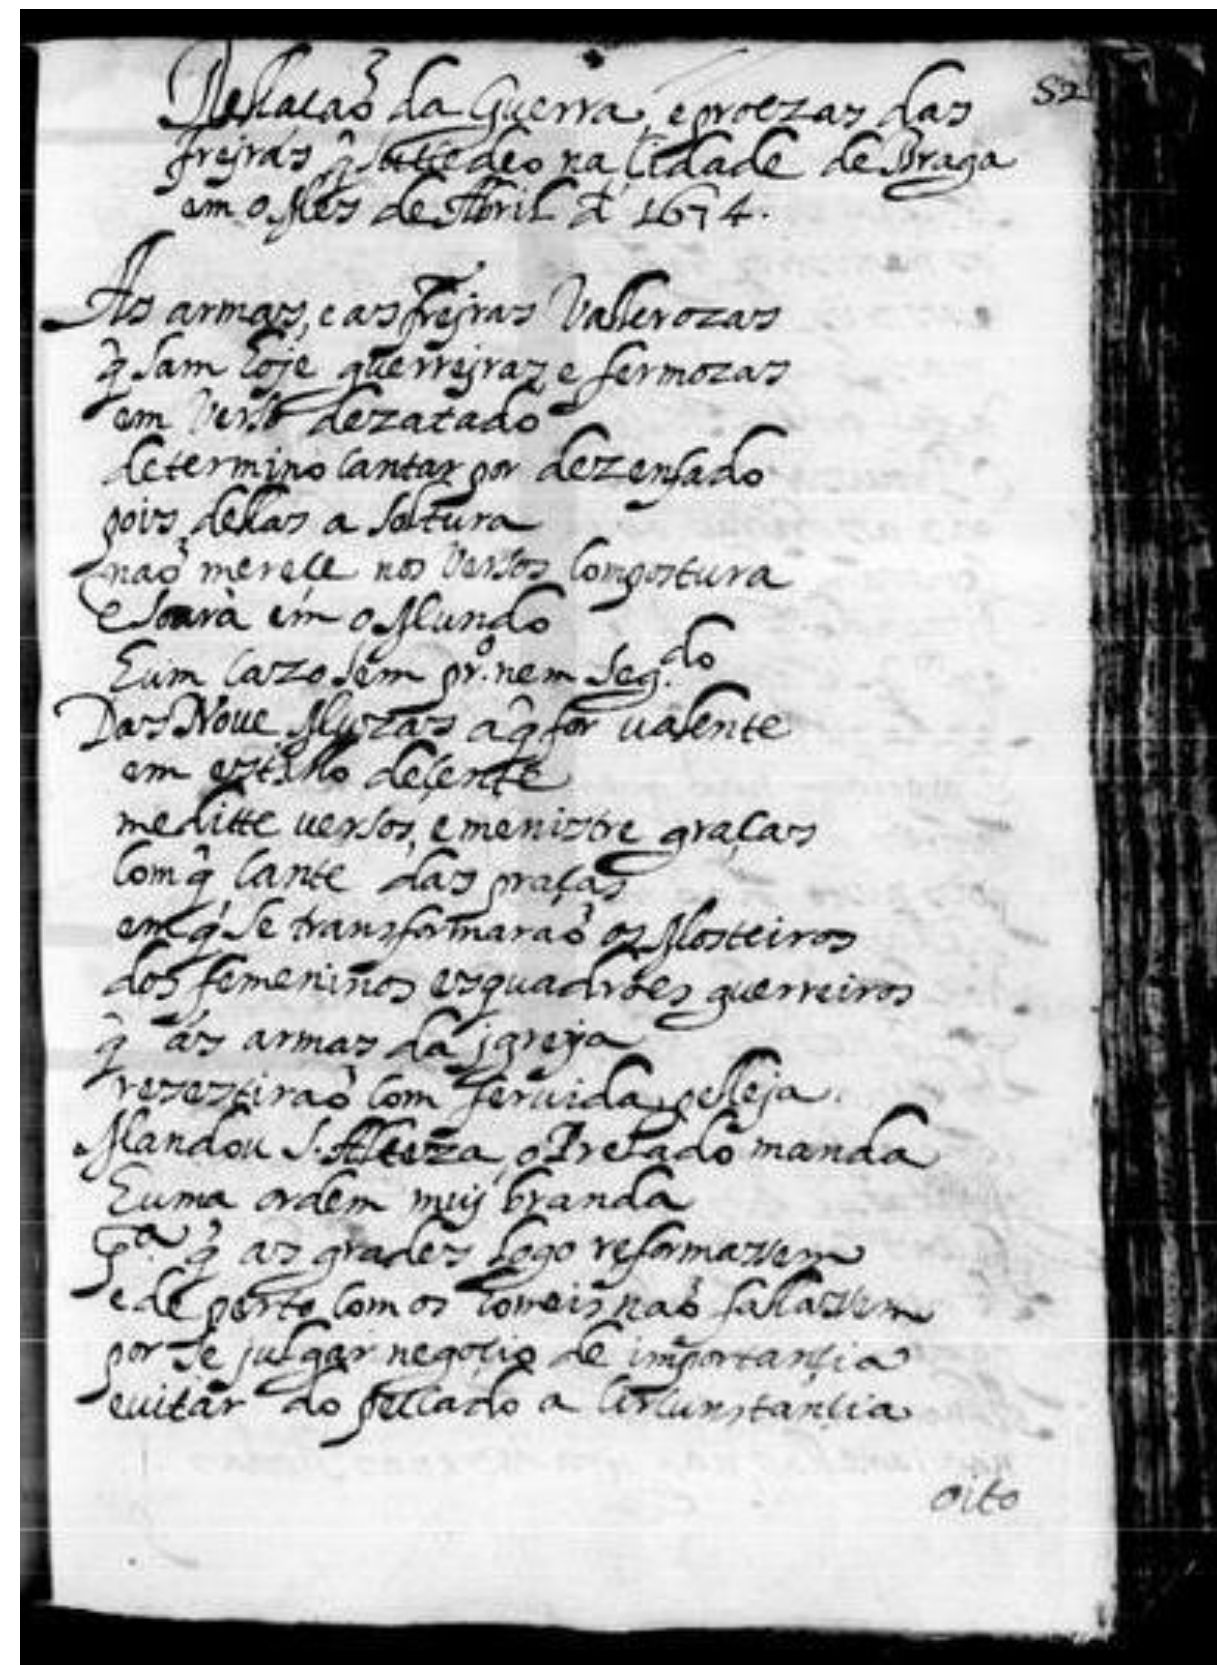 52
Rellacaõ da Guerra, e proezas das
frejras q̃ succedeo na Cidade de Braga
em o Mes de Abril dʼ 1674.
As armas, e as frejras Vallerozas
q̃ sam hoje guerrejras, e fermozas
em Verso dezatado
determino cantar por dezenfado
pois dellas a soltura
naõ merece nos Versos compostura
e soarà em o Mundo
hum cazo sem pr.º nem seg.do
Das Noue Muzas a q̃ for ualente
em estillo deçente
me ditte uersos, e menistre graças
com q̃ cante das praças
em q̃ se transformaraõ os Mosteiros
dos femeninos esquadrões guerreiros
q̃ ás armas da jgreja
resestiraõ com feruida pelleja.
Mandou S. Alteza, o Prelado manda
huma ordem muj branda
p.ª q̃ as grades logo reformassem
e de perto com os homeis naõ fallassem
por se julgar negoçio de importançia
euitar do peccado a circunstançia
oito